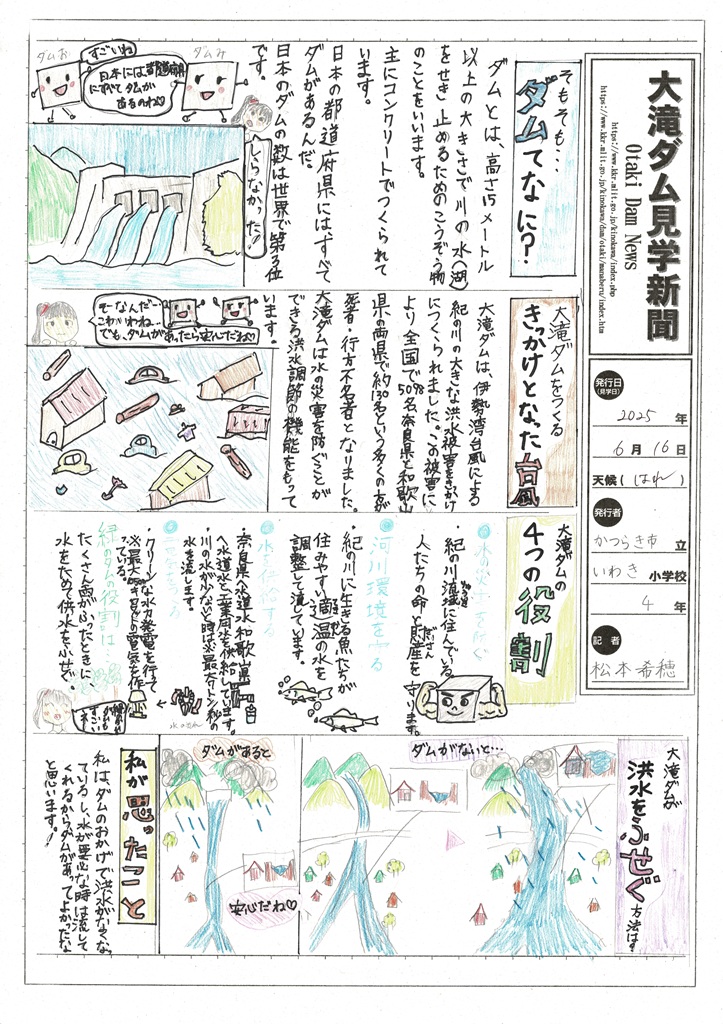 大滝ダム見学新聞
Otaki Dam News
https://www.kkr.mlit.go.jp/kinokawa/index.php
https://www.kkr.mlit.go.jp/kinokawa/dam/otaki/manaberu/index.htm
発行日
(見学日)
2025年
6月16日
天候(はれ)
発行者
かつらき市立
いわき小学校
4年
記者
松本希穂
そもそも…
ダムてなに?
ダムとは、高さ15メートル
以上の大きさで川の水(湖)
をせき止めるためのこうぞう物
のことをいいます。
主にコンクリートでつくられて
います。
日本の都道府県にはすべて
ダムがあるんだ。
日本のダムの数は世界で第3位
です。
へーしらなかった!
ダムみ
ダムお
すごいね
日本には都道府県
にすべてダムが
あるのね
大滝ダムをつくる
きっかけとなった台風
大滝ダムは、伊勢湾台風による
紀の川の大きな洪水被害をきっかけ
につくられました。この被害に
より全国で5098名奈良県と和歌山
県の両県で約130名という多くの方が
死者・行方不名者となりました。
大滝ダムは水の災害を防ぐことが
できる洪水調節の機能をもって
います。
そーなんだー
こわいわね
でも、ダムがあったら安心だね
大滝ダムの
4つの役割
水の災害を防ぐ
紀の川流域に住んでいる
人たちの命と財産を守ります。
河川環境を守る
・紀の川に生きる魚たちが
住みやすい適温の水を
調整して流しています。
水を供給する
・奈良県へ水道水、和歌山県
へ水道水と工業用水を供給しています。
・川の水が少ない時は※最大トン/秒の
水を流します。
電気をつくる
・クリーンな水力発電を行って
いる。
緑のダムの役割は
たくさん雨がふったときに
水をためて供水をふせぐ。
大滝ダムが
洪水をふせぐ方法は?
ダムがないと…
ダムがあると
安心だね♡
私が思ったこと
私は、ダムのおかげで洪水がなくなっ
ているし、水が要必な時は流して
くれるからダムがあってよかったな
と思います。!